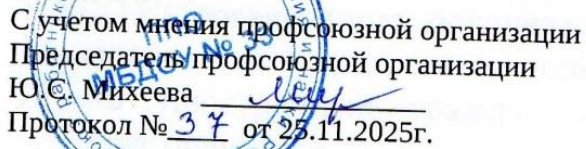 С учетом мнения профсоюзной организации
Председатель профсоюзной организации
Ю.С. Михеева
Протокол № 37 от 25.11.2025г.
ППО
МБДОУ № 33